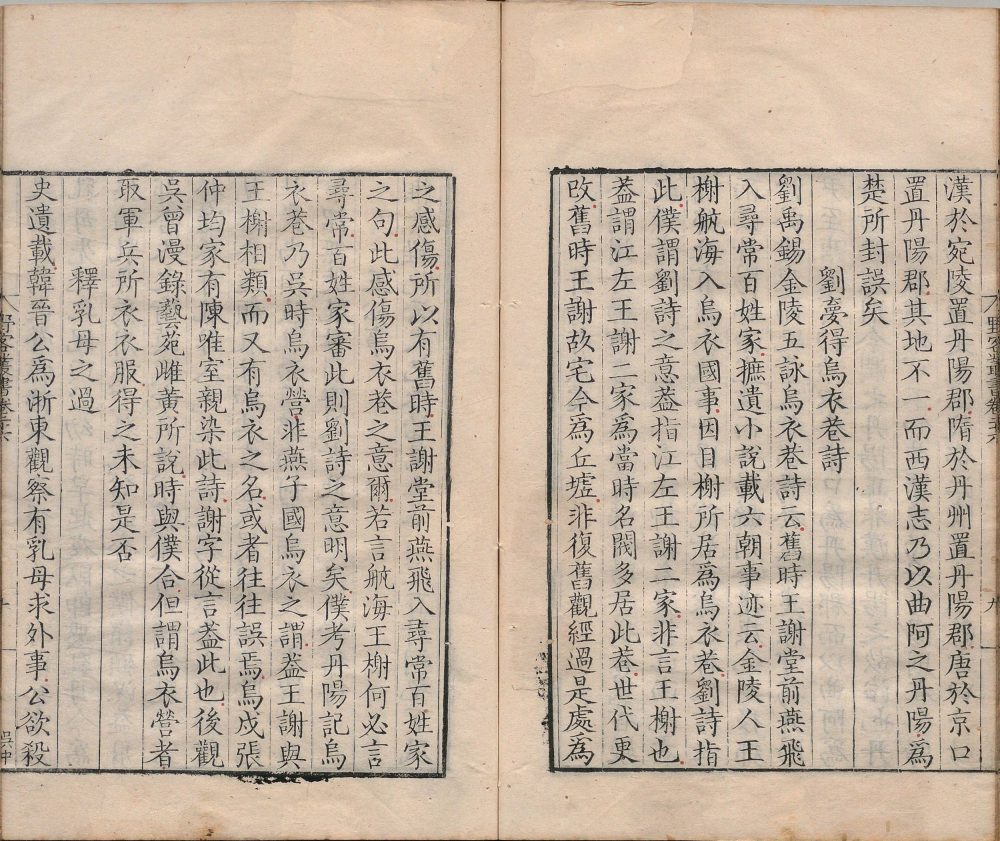 漢於宛陵置丹陽郡隋於丹州置丹陽郡唐於京口
置丹陽郡其地不一而西漢志乃以曲阿之丹陽爲
楚所封誤矣
劉夢得烏衣巷詩
劉禹錫金陵五詠烏衣巷詩云舊時王謝堂前燕飛
入尋常百姓家摭遺小說載六朝事迹云金陵人王
榭航海入烏衣國事因目榭所居爲烏衣巷劉詩指
此僕謂劉詩之意葢指江左王謝二家非言王榭也
葢謂江左王謝二家爲當時名閥多居此巷世代更
改舊時王謝故宅今爲丘墟非復舊觀經過是處爲
之感傷所以有舊時王謝堂前燕飛入尋常百姓家
之句此感傷烏衣巷之意爾若言航海王榭何必言
尋常百姓家審此則劉詩之意明矣僕考丹陽記烏
衣巷乃吳時烏衣營非燕子國烏衣之謂葢王謝與
王榭相類而又有烏衣之名或者往往誤焉烏戍張
仲均家有陳唯室親染此詩謝字從言葢此也後觀
吳曾漫錄藝苑雌黃所說時與僕合但謂烏衣營者
取軍兵所衣衣服得之未知是否
釋乳母之過
史遺載韓晉公爲浙東觀察有乳母求外事公欲殺
野客叢書卷